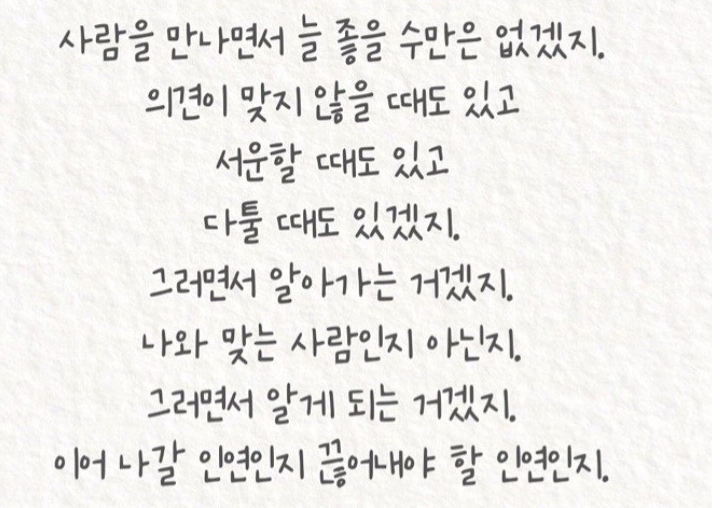 사람을 만나면서 늘 좋을 수만은 없겠지.
의견이 맞지 않을 때도 있고
서운할 때도 있고
다툴 때도 있겠지.
그러면서 알아가는 거겠지.
나와 맞는 사람인지 아닌지.
그러면서 알게 되는 거겠지.
이어 나갈 인연인지 끊어내야 할 인연인지.